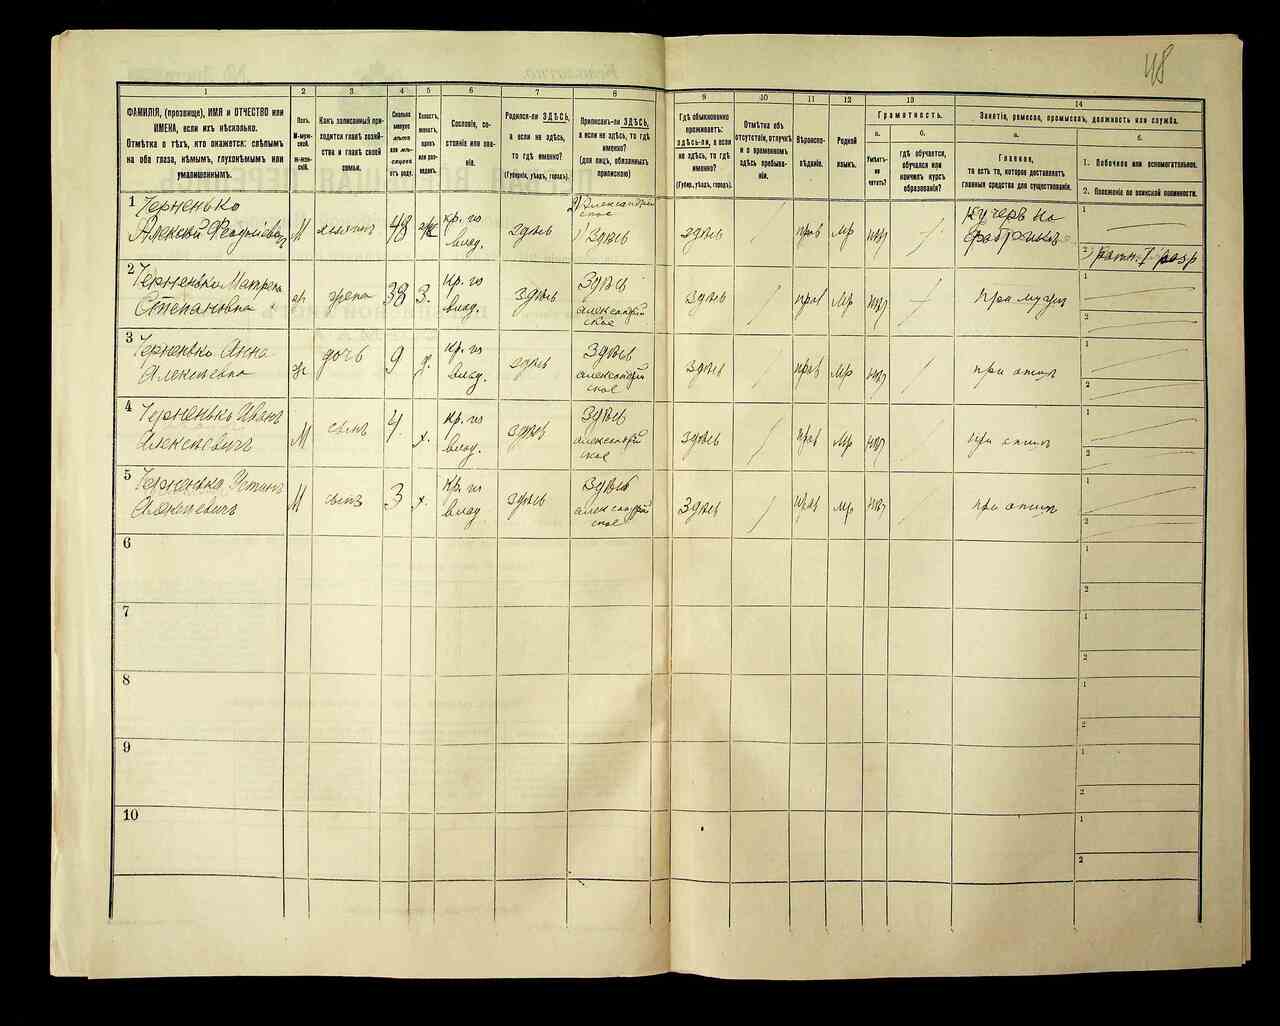 48
1
2
3
4
5
6
7
8
9
10
11
12
13
14
ФАМИЛІЯ, (прозвище), ИМЯ и ОТЧЕСТВО или
ИМЕНА, если ихъ нѣсколько.
Отмѣтка о тѣхъ, кто окажется: слѣпымъ
на оба глаза, нѣмымъ, глухонѣмымъ или
умалишеннымъ.
Полъ.
М-муж-
ской.
Ж-жен-
скій.
Какъ записанный при-
ходится главѣ хозяй-
ства и главѣ своей
семьи.
Сколько
минуло
лѣтъ
или мѣ-
сяцевъ
отъ роду.
Холостъ,
женатъ,
вдовъ
или раз-
веденъ.
Сословіе, со-
стояніе или зва-
ніе.
Родился-ли ЗДѢСЬ,
а если не здѣсь,
то гдѣ именно?
(Губернія, уѣздъ, городъ).
Приписанъ-ли ЗДѢСЬ,
а если не здѣсь, то гдѣ
именно?
(для лицъ, обязанныхъ
припискою)
Гдѣ обыкновенно
проживаетъ:
здѣсь-ли, а если
не здѣсь, то гдѣ
именно?
(Губер., уѣздъ, городъ).
Отмѣтка объ
отсутствіи, отлучкѣ
и о временномъ
здѣсь пребыва-
ніи.
Вѣроиспо-
вѣданіе.
Родной
языкъ.
Грамотность.
а.
Умѣетъ-
ли
читать?
б.
гдѣ обучается,
обучался или
кончилъ курсъ
образованія?
Занятіе, ремесло, промыселъ, должность или служба.
а.
Главное,
то есть то, которое доставляетъ
главныя средства для существованія.
б.
1. Побочное или вспомогательное.
2. Положеніе по воинской повинности.
1
Черненько
Алексей
М
хозяинъ
48
кр. го
влад.
здѣсь
2) Александрій
ское
1) Здѣсь
здѣсь
прав
Мр
нѣт
кучеръ на
1
2) ратн. 1 разр
2
Черненько Матрена
Степановна
ж
жена
38
З.
кр. го
влад.
здѣсь
Здѣсь
александрій
ское
здѣсь
прав
Мр
нѣт
при мужѣ
1
2
3
Черненько Анна
Алексѣевна
ж
дочь
9
д.
кр. го
влад.
здѣсь
Здѣсь
александрій
ское
здѣсь
прав
Мр
нѣт
при отцѣ
1
2
4
Черненько Иванъ
Алексѣевичъ
М
сынъ
4
х.
кр. го
влад.
здѣсь
Здѣсь
александрій
ское
здѣсь
прав
Мр
нѣт
при отцѣ
1
2
5
Черненько Устинъ
Алексѣевичъ
М
сынъ
3
х.
кр. го
влад
здѣсь
Здѣсь
александрій
ское
Здѣсь
прав
Мр
нѣт
при отцѣ
1
2
6
1
2
7
1
2
8
1
2
9
1
2
10
1
2